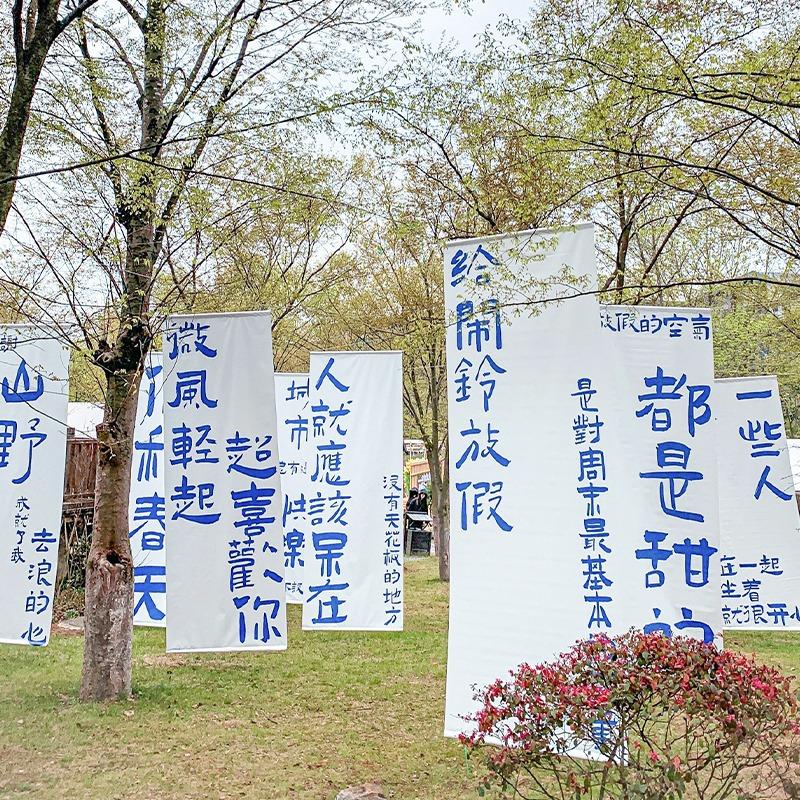 山野
成就了我
去浪的心
和春天
微風輕起
超喜歡你
城市
人就應該呆在
沒有天花板的地方
給鬧鈴放假
是對周末最基本
放假的空氣
都是甜的
一些人
在一起
坐着
就很开心